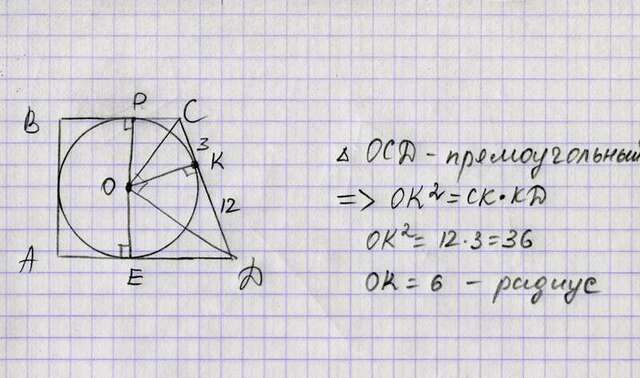 P
B
C
3
K
O
12
A
E
D
△ OCD - прямоугольный
=> OK² = CK·KD
OK² = 12·3 = 36
OK = 6 - радиус